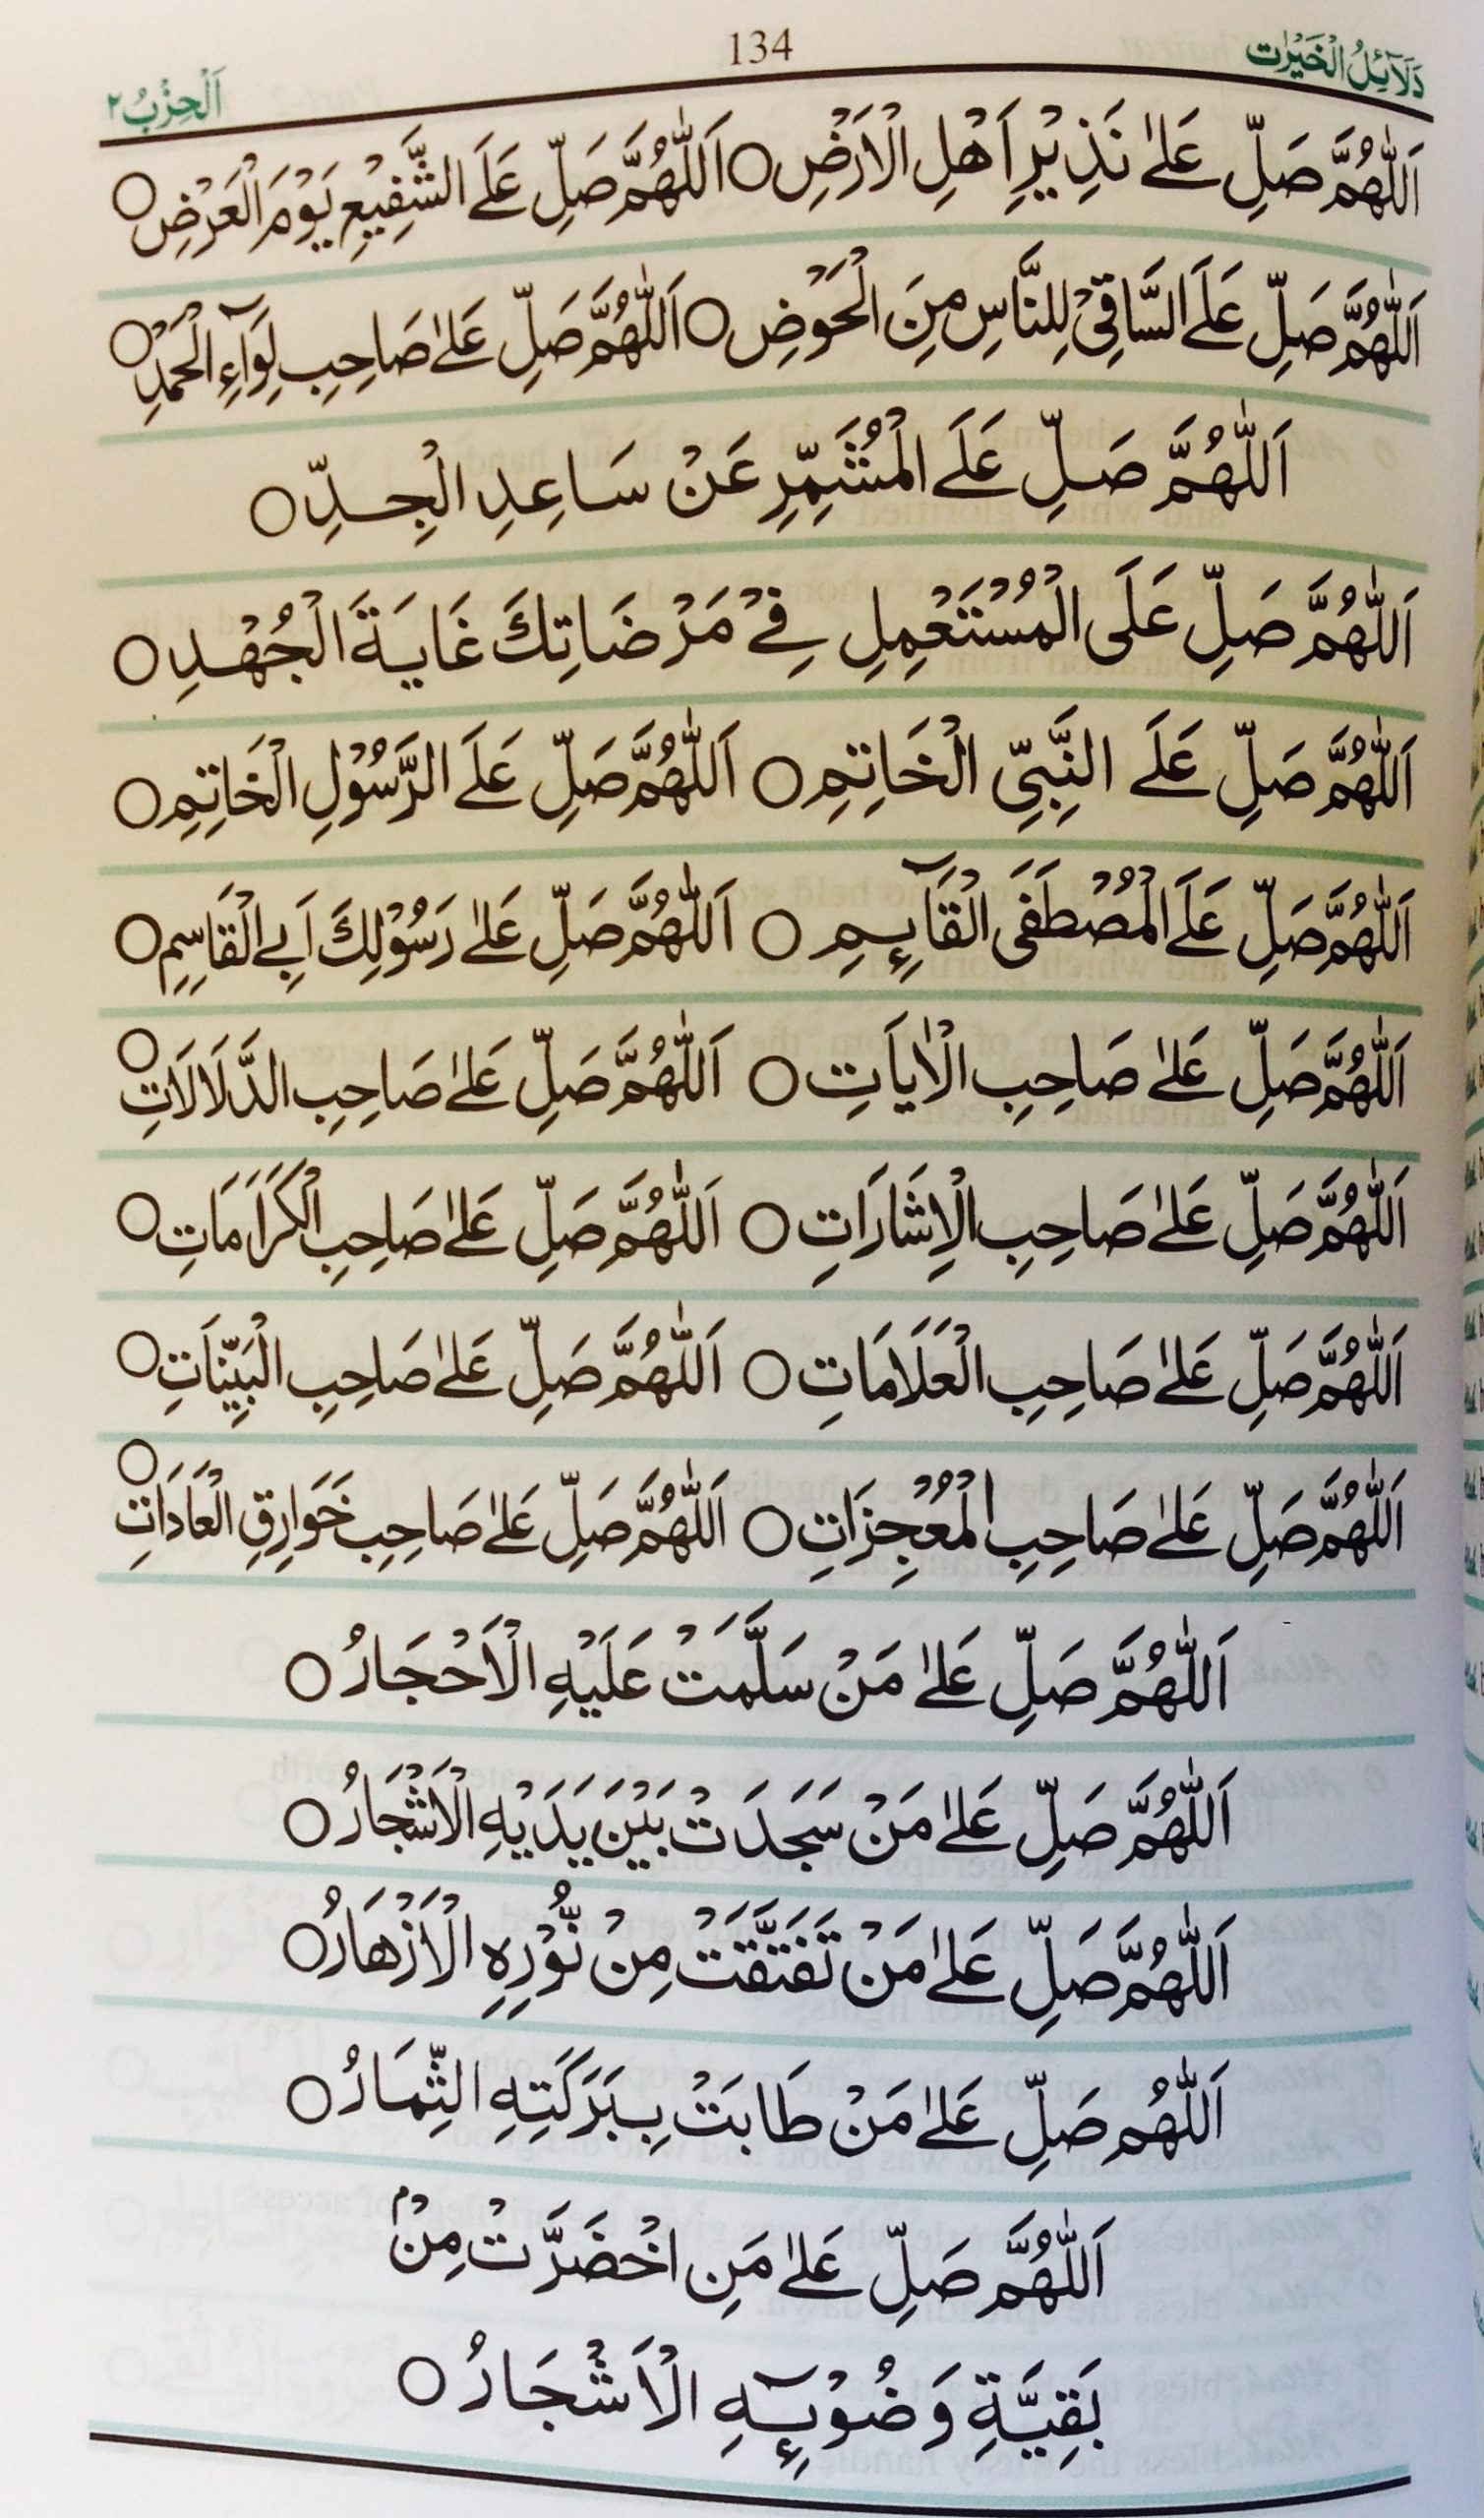 دَلَآئِلُ الْخَيْرٰت 134 اَلْحِزْبُ ٢
اَللّٰهُمَّ صَلِّ عَلٰى نَذِيْرِ اَهْلِ الْاَرْضِ ○ اَللّٰهُمَّ صَلِّ عَلَى الشَّفِيْعِ يَوْمَ الْعَرْضِ ○
اَللّٰهُمَّ صَلِّ عَلَى السَّاقِيْ لِلنَّاسِ مِنَ الْحَوْضِ ○ اَللّٰهُمَّ صَلِّ عَلٰى صَاحِبِ لِوَآءِ الْحَمْدِ ○
اَللّٰهُمَّ صَلِّ عَلَى الْمُشَمِّرِ عَنْ سَاعِدِ الْجِدِّ ○
اَللّٰهُمَّ صَلِّ عَلَى الْمُسْتَعْمِلِ فِيْ مَرْضَاتِكَ غَايَةَ الْجُهْدِ ○
اَللّٰهُمَّ صَلِّ عَلَى النَّبِيِّ الْخَاتِمِ ○ اَللّٰهُمَّ صَلِّ عَلَى الرَّسُوْلِ الْخَاتِمِ ○
اَللّٰهُمَّ صَلِّ عَلَى الْمُصْطَفَى الْقَآئِمِ ○ اَللّٰهُمَّ صَلِّ عَلٰى رَسُوْلِكَ اَبِي الْقَاسِمِ ○
اَللّٰهُمَّ صَلِّ عَلٰى صَاحِبِ الْاٰيَاتِ ○ اَللّٰهُمَّ صَلِّ عَلٰى صَاحِبِ الدَّلَالَاتِ ○
اَللّٰهُمَّ صَلِّ عَلٰى صَاحِبِ الْاِشَارَاتِ ○ اَللّٰهُمَّ صَلِّ عَلٰى صَاحِبِ الْكَرَامَاتِ ○
اَللّٰهُمَّ صَلِّ عَلٰى صَاحِبِ الْعَلَامَاتِ ○ اَللّٰهُمَّ صَلِّ عَلٰى صَاحِبِ الْبَيِّنَاتِ ○
اَللّٰهُمَّ صَلِّ عَلٰى صَاحِبِ الْمُعْجِزَاتِ ○ اَللّٰهُمَّ صَلِّ عَلٰى صَاحِبِ خَوَارِقِ الْعَادَاتِ ○
اَللّٰهُمَّ صَلِّ عَلٰى مَنْ سَلَّمَتْ عَلَيْهِ الْاَحْجَارُ ○
اَللّٰهُمَّ صَلِّ عَلٰى مَنْ سَجَدَتْ بَيْنَ يَدَيْهِ الْاَشْجَارُ ○
اَللّٰهُمَّ صَلِّ عَلٰى مَنْ تَفَتَّقَتْ مِنْ نُّوْرِهِ الْاَزْهَارُ ○
اَللّٰهُم صَلِّ عَلٰى مَنْ طَابَتْ بِبَرَكَتِهِ الثِّمَارُ ○
اَللّٰهُمَّ صَلِّ عَلٰى مَنِ اخْضَرَّتْ مِنْۢ
بَقِيَّةِ وَضُوْئِهِ الْاَشْجَارُ ○